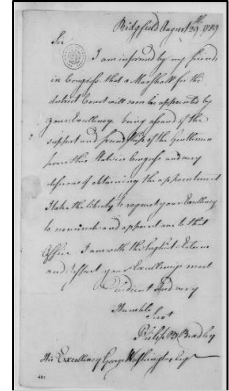 Ridgfield August 29th 1789
Sir
I am informed by my friends
in Congress that a Marshall for the
district Court will soon be appointed by
your Excellency being assured of the
support and friendship of the Gentlemen
from this State in Congress and very
desirous of obtaining the appointment
I take the liberty to request your Excellency
to nominate and appoint me to that
Office I am with the highest Esteem
and respect your Excellencys most
Obedient And very
Humble
Sert
Philip B Bradley
His Excellency George Washington Esqr